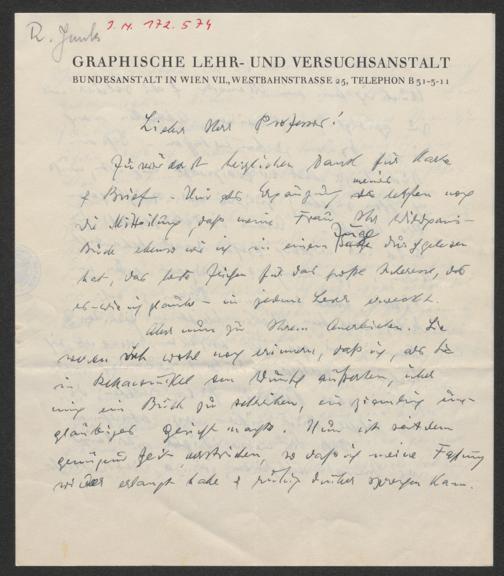 R. Junk
I.N. 172.574
GRAPHISCHE LEHR- UND VERSUCHSANSTALT
BUNDESANSTALT IN WIEN VII., WESTBAHNSTRASSE 25, TELEPHON B 31-5-11
Lieber Herr Professor!
Zunächst herzlichen Dank für Karte
& Brief. Und als Ergänzung meines letzten noch
die Mitteilung, daß meine Frau Ihr
Buch ebenso wie ich in einem Zuge durchgelesen
hat, das beste Zeichen für das große Interesse, das
es – wie ich glaube – in jedem Leser erweckt.
Aber nun zu Ihrem Anerbieten. Sie
werden sich wohl noch erinnern, daß ich, als Sie
in den Wunsch äußerten, über
mich ein Buch zu schreiben, ein ziemlich un-
gläubiges Gesicht machte. Nun ist seitdem
genügend Zeit verstrichen, so daß ich meine Fassung
wieder erlangt habe & ruhig darüber sprechen kann.